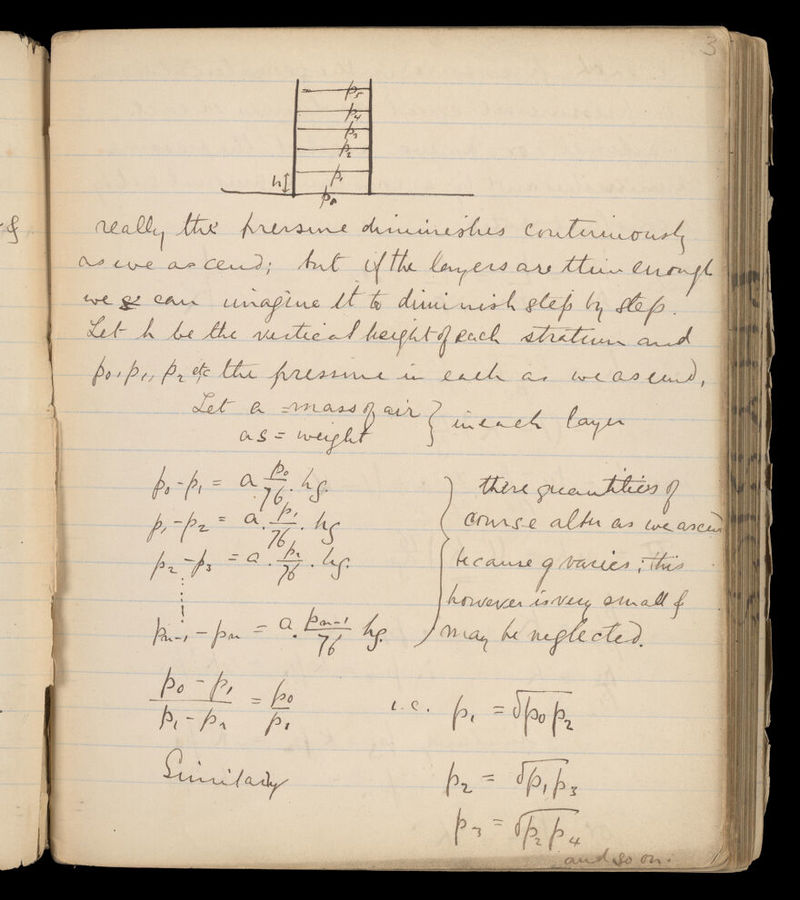 3
p₅
p₄
p₃
p₂
h p₁
p₀
&
really the pressure diminishes continuously
as we ascend; but if the layers are thin enough
we can imagine it to diminish step by step.
Let h be the vertical height of each stratum and
p₀, p₁, p₂ etc the pressure in each as we ascend,
Let a = mass of air } in each layer
as = weight
p₀ - p₁ = a p₀/76 . hg.
p₁ - p₂ = a . p₁/76 . hg
p₂ - p₃ = a . p₂/76 . hg.
pₙ₋₁ - pₙ = a . pₙ₋₁/76 hg.
} these quantities of
course alter as we ascend
because g varies; this
however is very small &
may be neglected.
p₀ - p₁ / p₁ - p₂ = p₀ / p₁ i.e. p₁ = √p₀p₂
Similarly p₂ = √p₁p₃
p₃ = √p₂p₄
and so on.